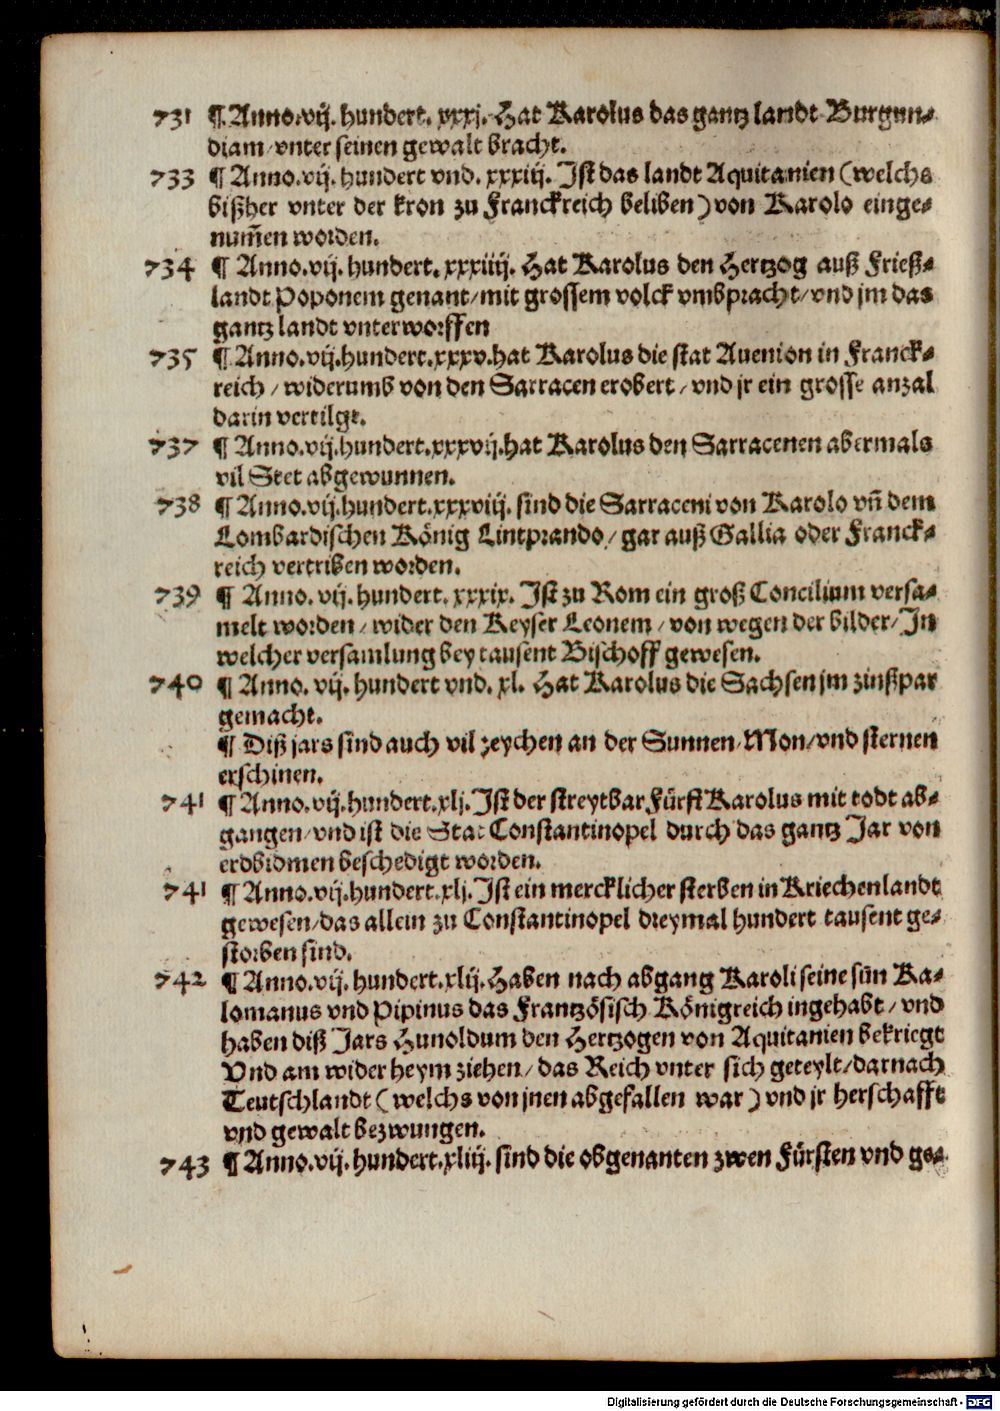 731 ¶ Anno.vij.hundert.xxxj. Hat Karolus das gantz landt Burgun⸗
diam/vnter seinen gewalt bracht.
733 ¶ Anno.vij.hundert vnd.xxxiij. Ist das landt Aquitanien (welchs
bißher vnter der kron zu Franckreich beliben) von Karolo einge⸗
num̄en worden.
734 ¶ Anno.vij.hundert.xxxiiij. Hat Karolus den Hertzog auß Frieß⸗
landt Poponem genant/mit grossem volck vmbpracht/vnd jm das
gantz landt vnterworffen
735 ¶ Anno.vij.hundert.xxxv.hat Karolus die stat Auenion in Franck⸗
reich/widerumb von den Sarracen erobert/vnd jr ein grosse anzal
darin vertilgt.
737 ¶ Anno.vij.hundert.xxxvij.hat Karolus den Sarracenen abermals
vil Stet abgewunnen.
738 ¶ Anno.vij.hundert.xxxviij. sind die Sarraceni von Karolo vn̄ dem
Lombardischen König Lintprando/gar auß Gallia oder Franck⸗
reich vertriben worden.
739 ¶ Anno.vij.hundert.xxxix. Ist zu Rom ein groß Concilium versa⸗
melt worden/wider den Keyser Leonem/von wegen der bilder/In
welcher versamlung bey tausent Bischoff gewesen.
740 ¶ Anno.vij.hundert vnd.xl. Hat Karolus die Sachsen jm zinßpar
gemacht.
¶ Diß jars sind auch vil zeychen an der Sunnen/Mon/vnd sternen
erschinen.
741 ¶ Anno.vij.hundert.xlj. Ist der streytbar Fürst Karolus mit todt ab⸗
gangen/vnd ist die Stat Constantinopel durch das gantz Jar von
erdbidmen beschedigt worden.
741 ¶ Anno.vij.hundert.xlj. Ist ein mercklicher sterben in Kriechenlandt
gewesen/das allein zu Constantinopel dreymal hundert tausent ge⸗
storben sind.
742 ¶ Anno.vij.hundert.xlij. Haben nach abgang Karoli seine sün Ka⸗
lomanus vnd Pipinus das Frantzösisch Königreich ingehabt/vnd
haben diß Jars Hunoldum den Hertzogen von Aquitanien bekriegt
Vnd am wider heym ziehen/das Reich vnter sich geteylt/darnach
Teutschlandt (welchs von jnen abgefallen war) vnd jr herschafft
vnd gewalt bezwungen.
743 ¶ Anno.vij.hundert.xliij. sind die obgenanten zwen Fürsten vnd ge⸗
Digitalisierung gefördert durch die Deutsche Forschungsgemeinschaft - DFG